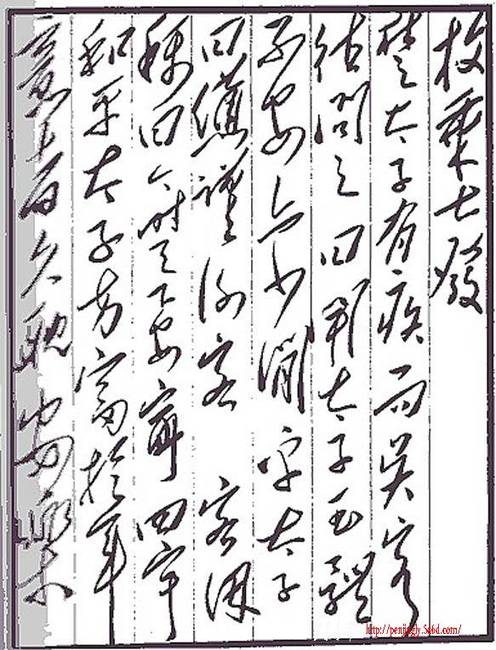 枚乘七發
楚太子有疾而吴客
往问之曰闻太子玉體
不安亦少间乎太子
曰憊谨谢客 客因
稱曰今时天下安寧四宇
和平太子方富於年
意者久耽安樂
http://penjingly.5d6d.com/